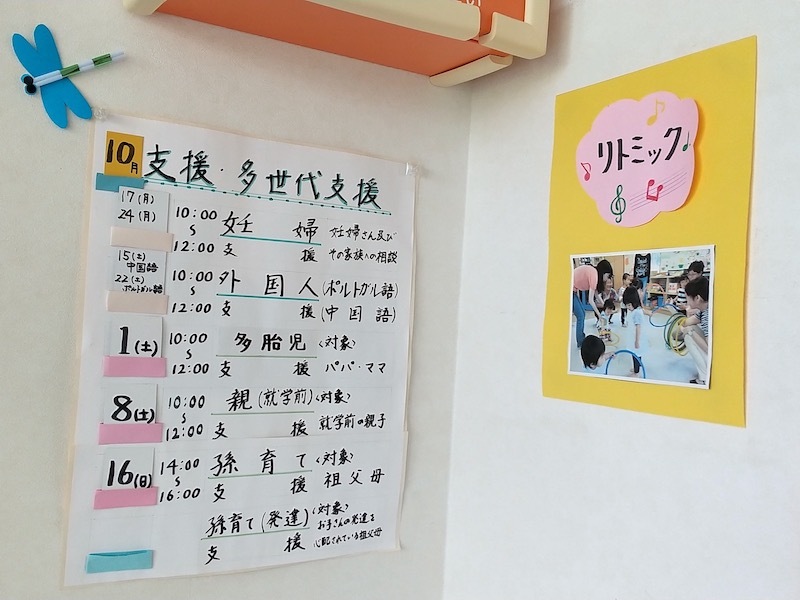 10月 支援・多世代支援
17(月)
24(月)
10:00
〜
12:00
妊婦
支援
妊婦さん及び
その家族への相談
15(土)
中国語
22(土)
ポルトガル語
10:00
〜
12:00
外国人(ポルトガル語)
支援(中国語)
1(土)
10:00
〜
12:00
多胎児
支援
<対象>
パパ・ママ
8(土)
10:00
〜
12:00
親(就学前)
支援
<対象>
就学前の親子
16(日)
14:00
〜
16:00
孫育て
支援
<対象>
祖父母
孫育て(発達)
支援
<対象>
お子さんの発達を
心配されている祖父母
リトミック